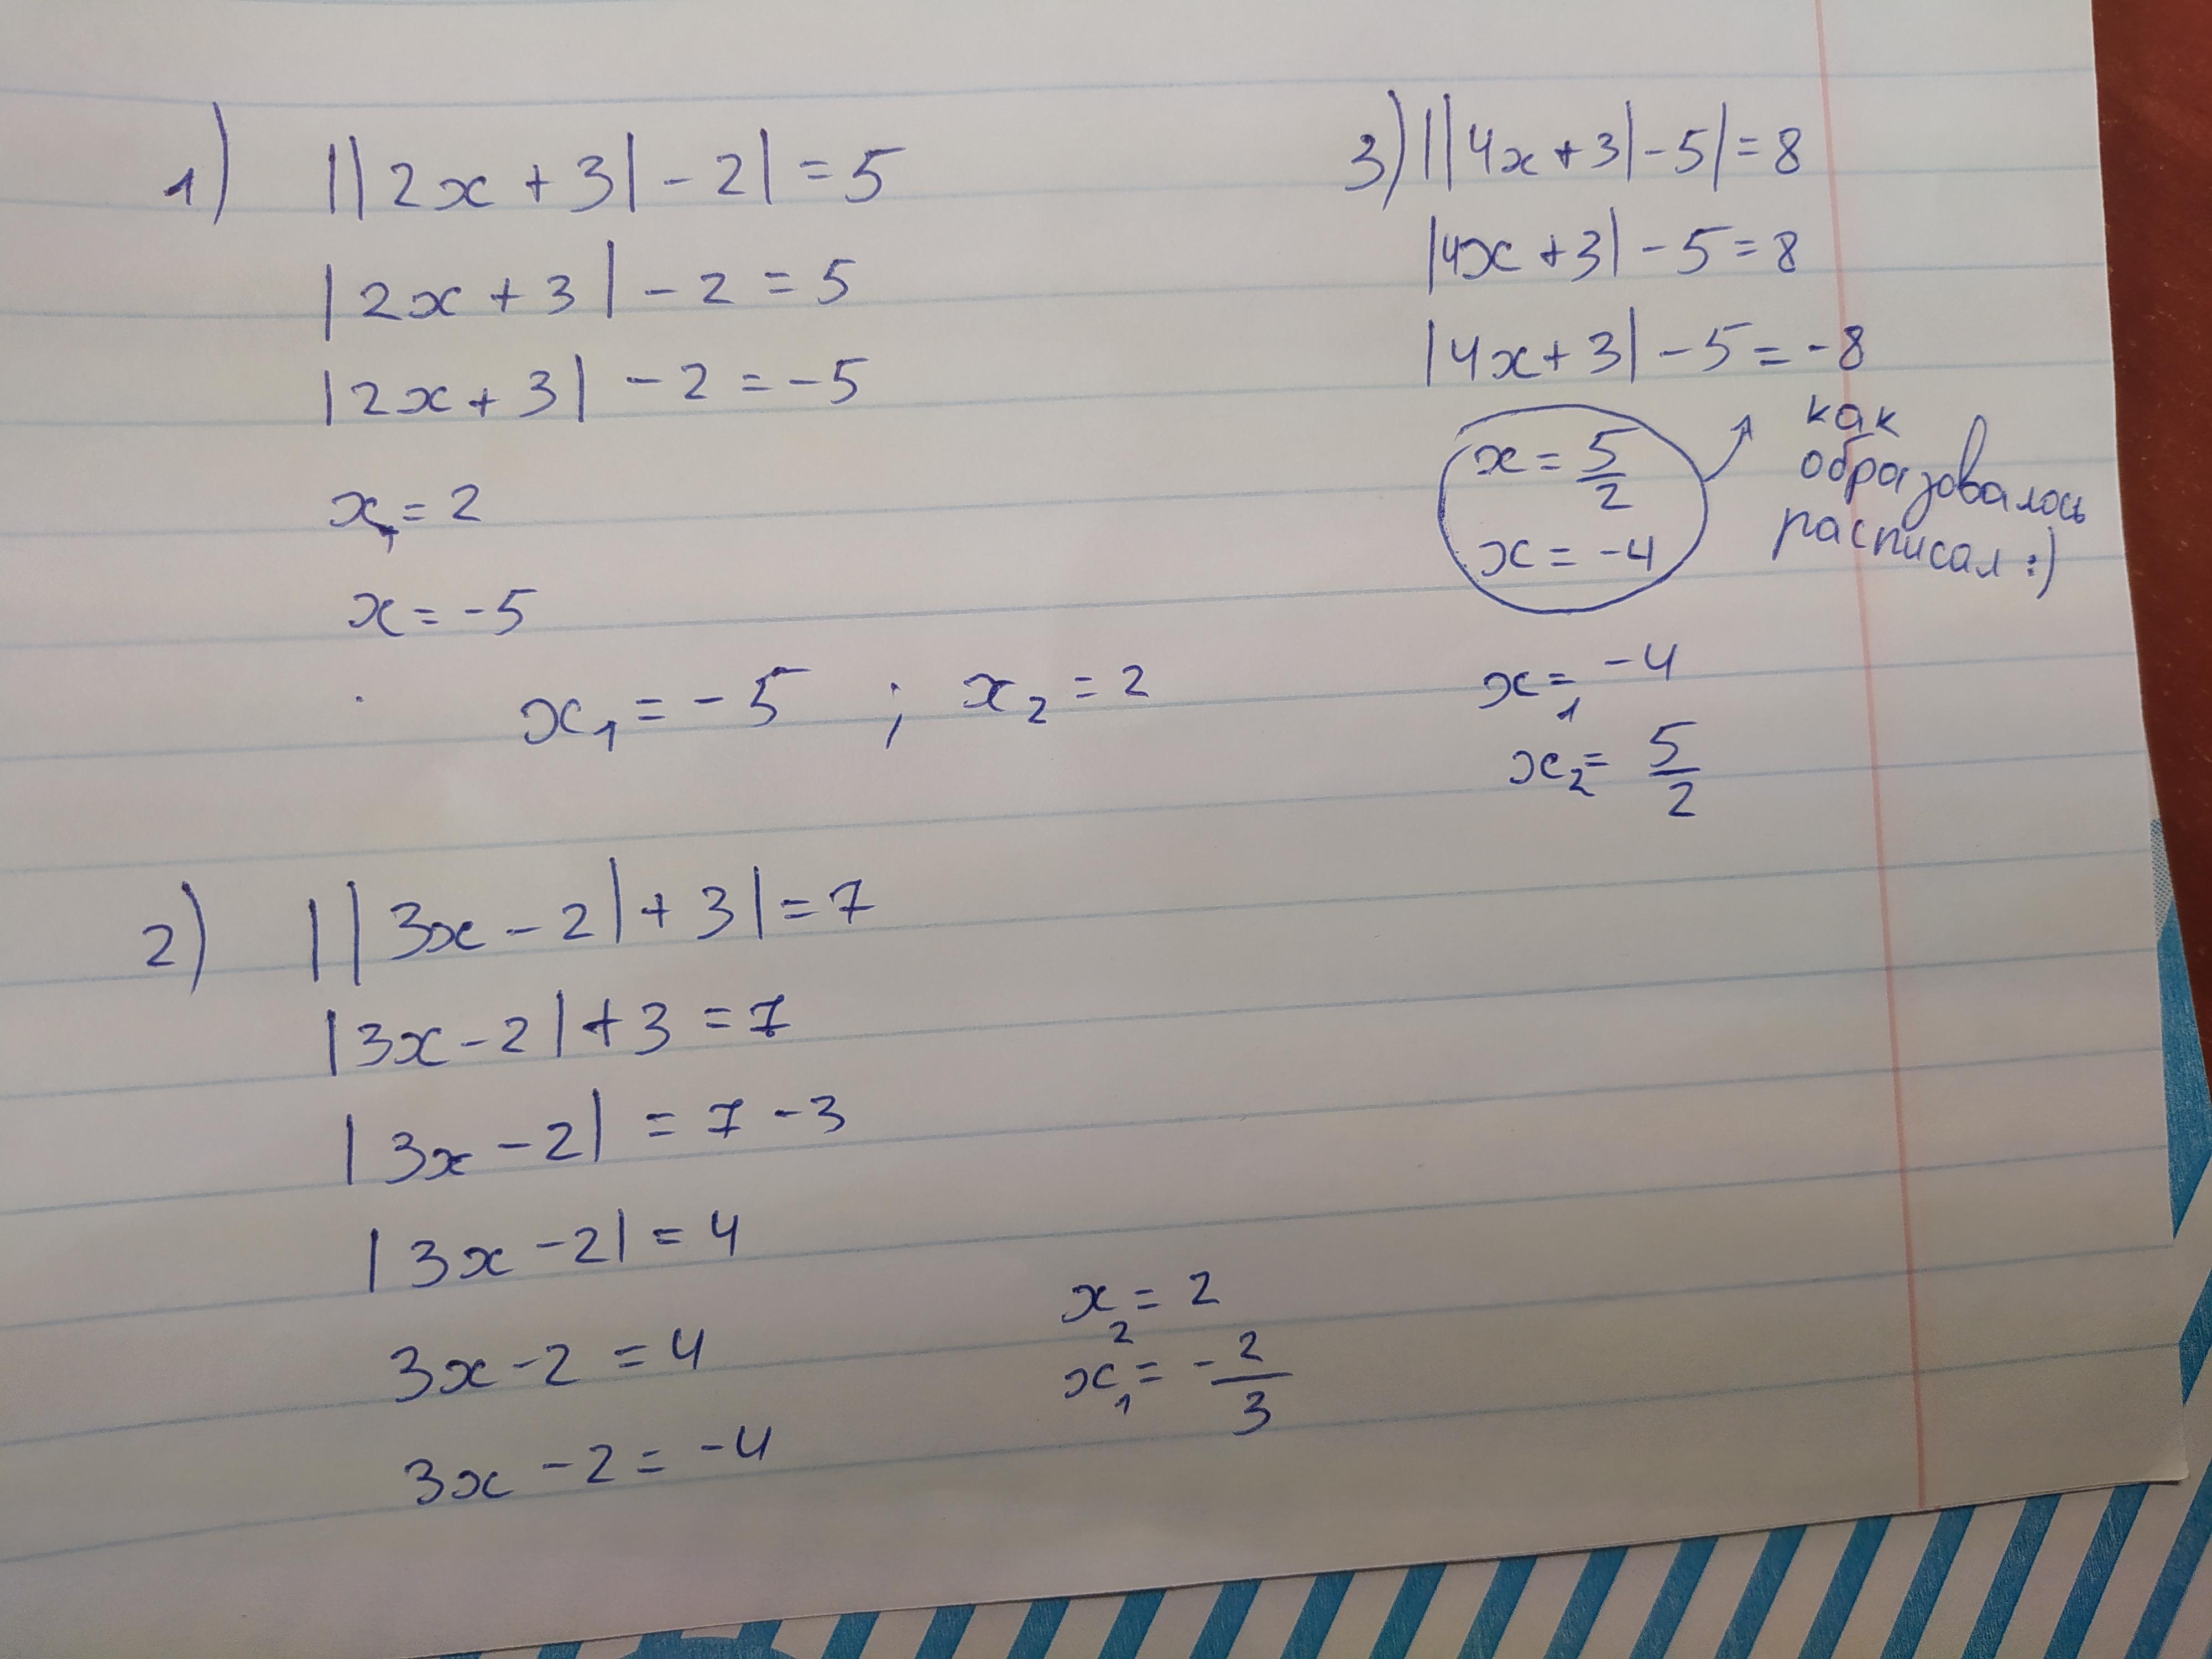 1) ||2x+3|-2|=5
|2x+3|-2=5
|2x+3|-2=-5
x₁=2
x=-5
x₁=-5 ; x₂=2
2) ||3x-2|+3|=7
|3x-2|+3=7
|3x-2|=7-3
|3x-2|=4
3x-2=4
3x-2=-4
x₂=2
x₁=-2/3
3) ||4x+3|-5|=8
|4x+3|-5=8
|4x+3|-5=-8
x=5/2
x=-4
как
образовалось
расписал :)
x₁=-4
x₂=5/2